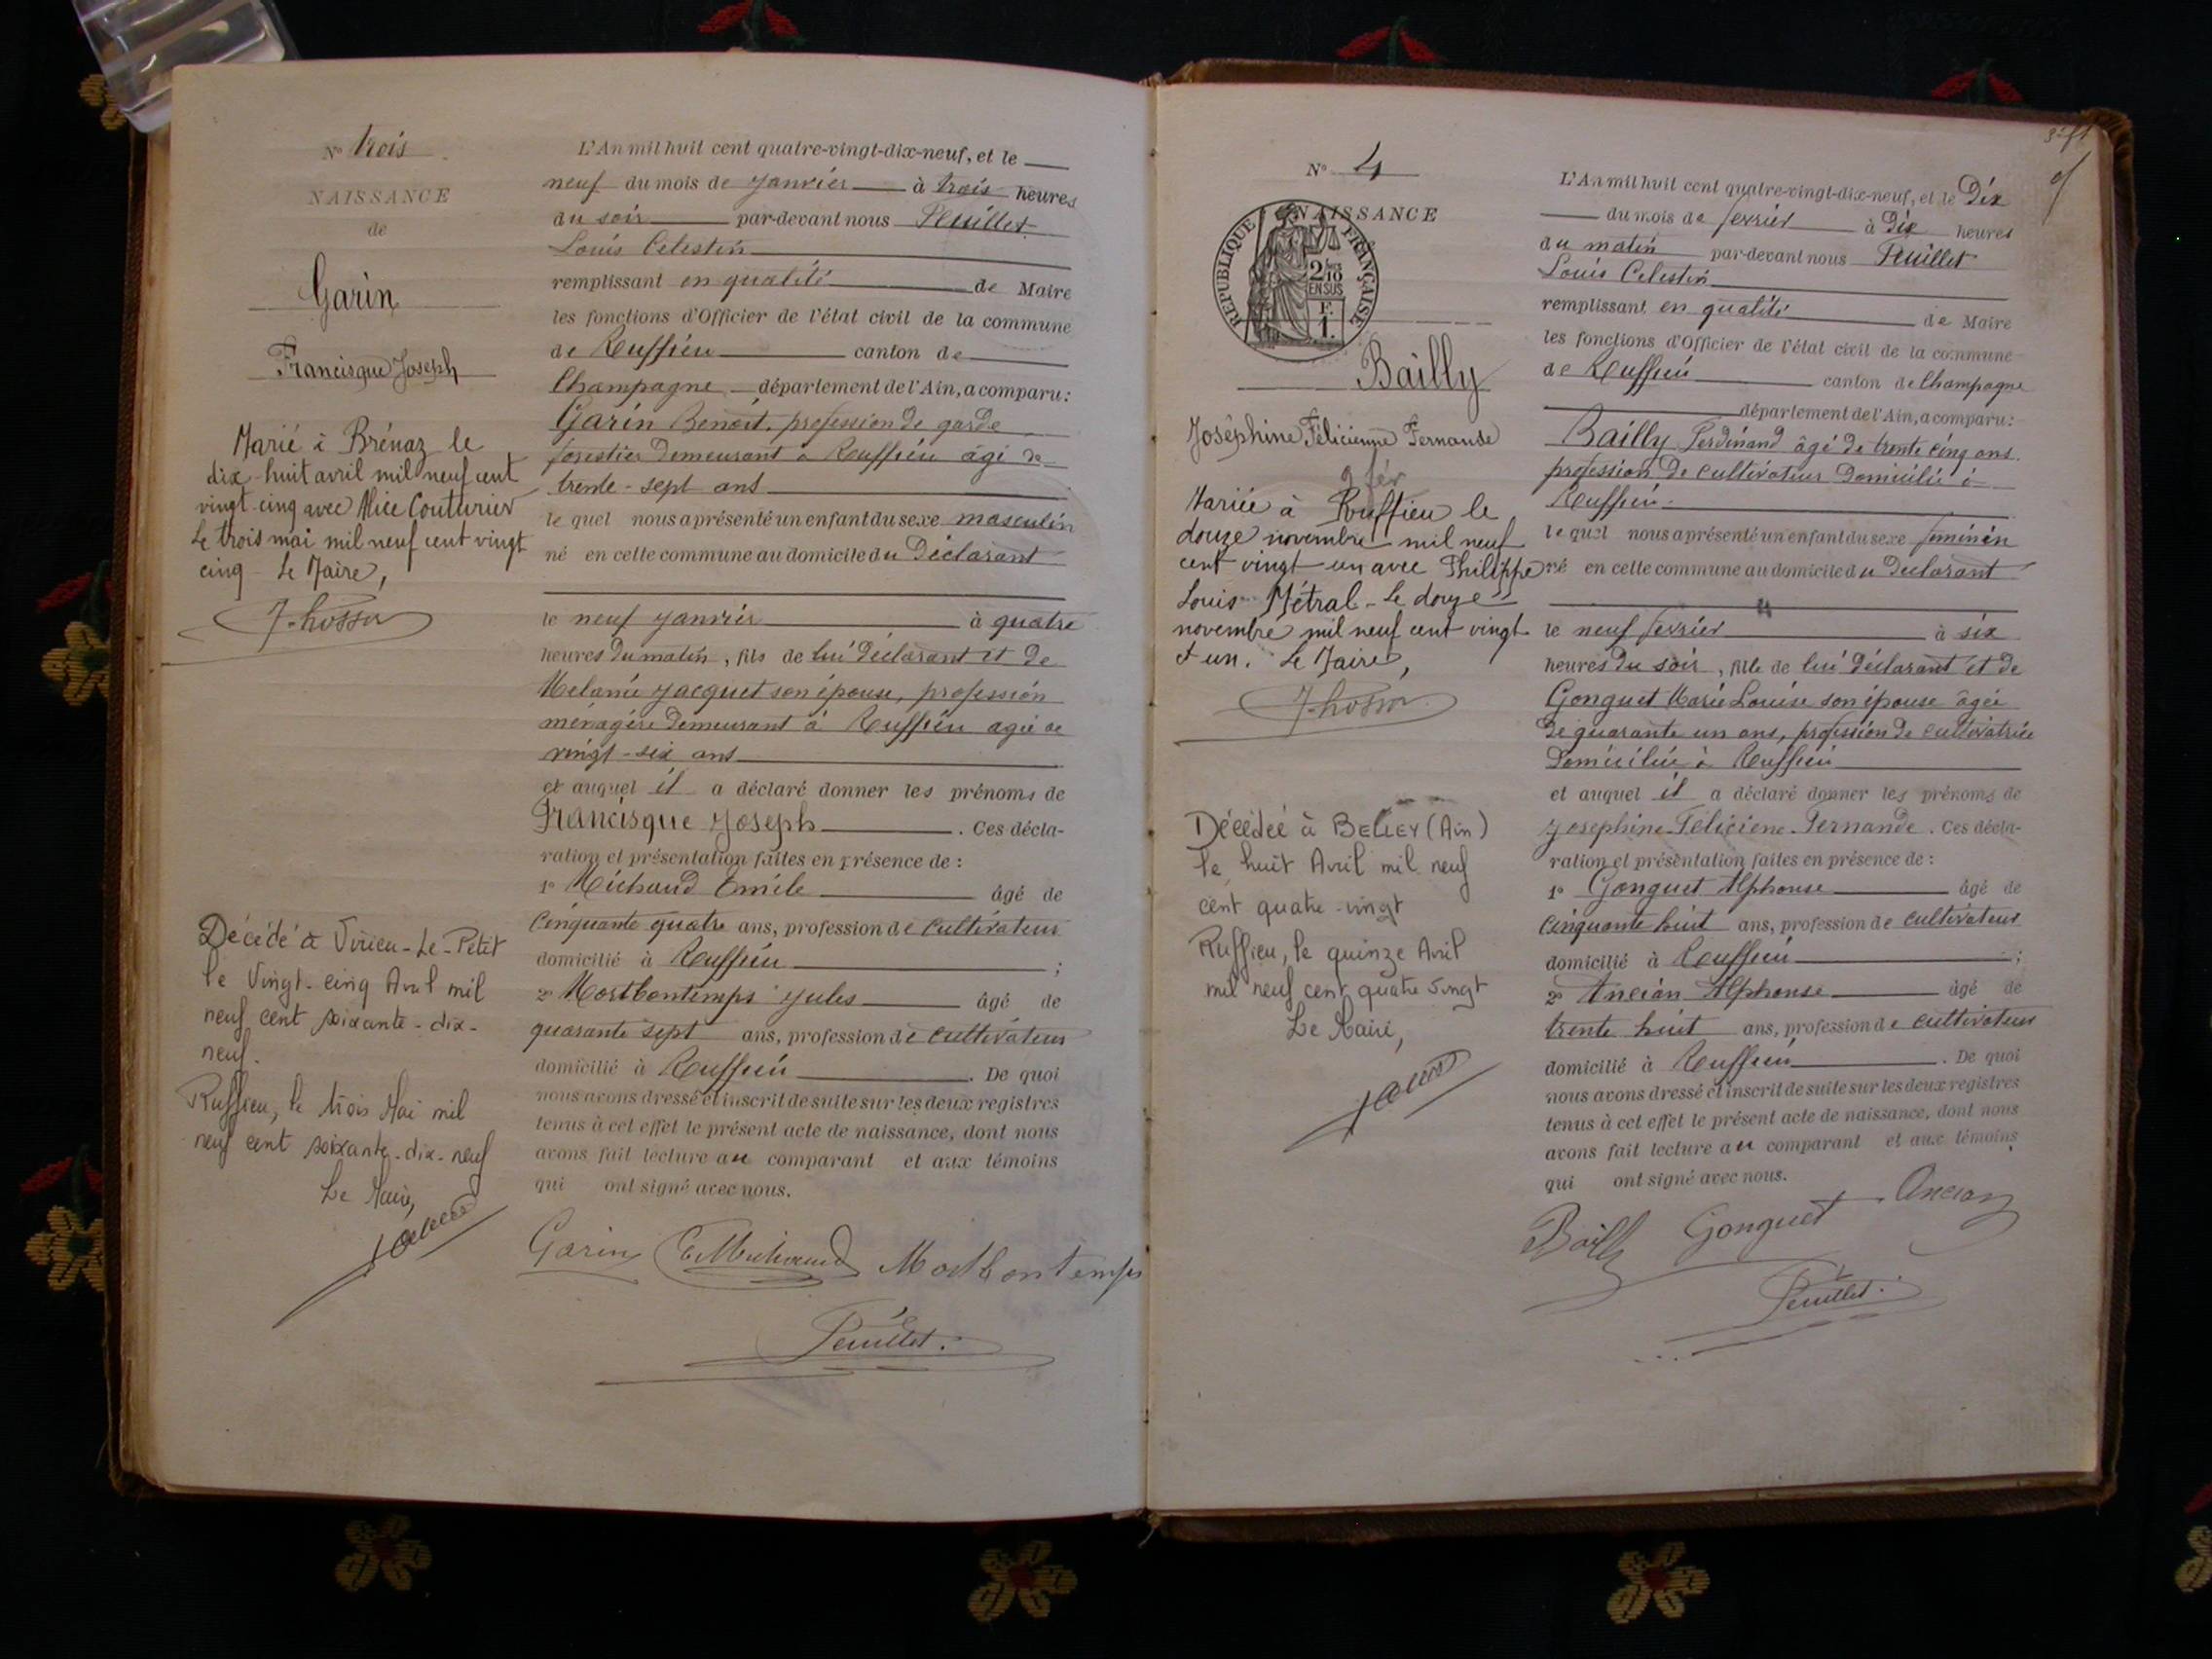 N° trois
NAISSANCE
de
Garin
Francisque Joseph
Marié à Brénaz le
dix-huit avril mil neuf cent
vingt-cinq avec Alice Couturier
Le trois mai mil neuf cent vingt
cinq - Le Maire,
Décédé à Virieu-Le-Petit
le Vingt-cinq Avril mil
neuf cent soixante-dix-
neuf.
Ruffieu, le trois Mai mil
neuf cent soixante-dix-neuf
Le Maire,
L'An mil huit cent quatre-vingt-dix-neuf, et le
neuf du mois de janvier à trois heures
du soir par-devant nous Peuillet
Louis Celestin
remplissant en qualité de Maire
les fonctions d'Officier de l'état civil de la commune
de Ruffieu canton de
Champagne département de l'Ain, a comparu:
Garin Benoit, profession de garde
forestier demeurant à Ruffieu âgé de
trente-sept ans
le quel nous a présenté un enfant du sexe masculin
né en cette commune au domicile du Déclarant
le neuf janvier à quatre
heures du matin, fils de lui déclarant et de
Melanie Jacquet son épouse, profession
ménagère demeurant à Ruffieu agée de
vingt-six ans
et auquel il a déclaré donner les prénoms de
Francisque Joseph. Ces décla-
ration et présentation faites en présence de :
1° Michaud Emile âgé de
cinquante quatre ans, profession de cultivateur
domicilié à Ruffieu ;
2° Mortbontemps Jules âgé de
quarante sept ans, profession de cultivateur
domicilié à Ruffieu. De quoi
nous avons dressé et inscrit de suite sur les deux registres
tenus à cet effet le présent acte de naissance, dont nous
avons fait lecture au comparant et aux témoins
qui ont signé avec nous.
Garin E Michaud Mortbontemps
Peuillet.
N° 4
NAISSANCE
REPUBLIQUE FRANÇAISE
2/10
EN SUS
F.
1.
Bailly
Joséphine Félicienne Fernande
9 fév
Mariée à Ruffieu le
douze novembre mil neuf
cent vingt-un avec Philippe
Louis Métral - Le douze
novembre mil neuf cent vingt
et un. Le Maire,
Décédée à BELLEY (Ain)
le huit Avril mil neuf
cent quatre-vingt
Ruffieu, le quinze Avril
mil neuf cent quatre vingt
Le Maire,
L'An mil huit cent quatre-vingt-dix-neuf, et le Dix
du mois de fevrier à Dix heures
du matin par-devant nous Peuillet
Louis Celestin
remplissant en qualité de Maire
les fonctions d'Officier de l'état civil de la commune
de Ruffieu canton de Champagne
département de l'Ain, a comparu:
Bailly Ferdinand âgé de trente cinq ans
profession de cultivateur domicilié à
Ruffieu
le quel nous a présenté un enfant du sexe féminin
né en cette commune au domicile du declarant
le neuf fevrier à six
heures du soir, fille de lui déclarant et de
Gonguet Marie Louise son épouse âgée
de quarante un ans, profession de cultivatrice
domiciliée à Ruffieu
et auquel il a déclaré donner les prénoms de
Josephine-Féliciene-Fernande. Ces décla-
ration et présentation faites en présence de :
1° Gonguet Alphonse âgé de
cinquante huit ans, profession de cultivateur
domicilié à Ruffieu ;
2° Ancian Alphonse âgé de
trente huit ans, profession de cultivateur
domicilié à Ruffieu. De quoi
nous avons dressé et inscrit de suite sur les deux registres
tenus à cet effet le présent acte de naissance, dont nous
avons fait lecture au comparant et aux témoins
qui ont signé avec nous.
Bailly Gonguet Ancian
Peuillet.